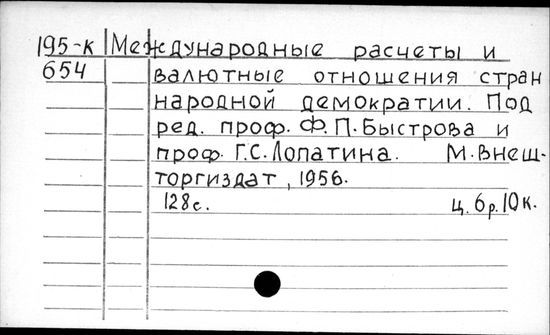 195-к Международные расчеты и
654 валютные отношения стран
народной демократии. Под
ред. проф. Ф.П.Быстрова и
проф. Г.С.Лопатина. М.Внеш-
торгиздат, 1956.
128с. ц. 6р.10к.